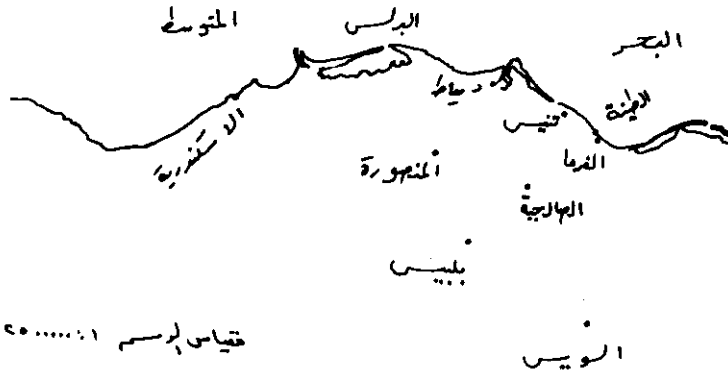 البحر
المتوسط
البرلس
دمياط
الطينة
تنيس
الفرما
الاسكندرية
المنصورة
الصالحية
بلبيس
السويس
مقياس الرسم